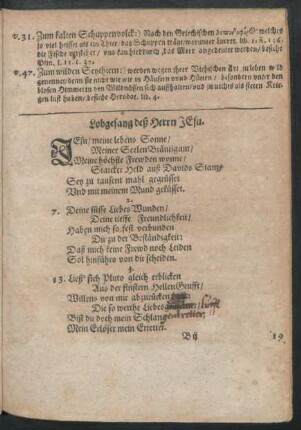 v. 31. Zum kalten Schuppenvolck:) Nach den Griechischen welches
so viel heisset als ein Thier/ das Schuppen trägt/
die Fische verstehet/ und kan hierdurch das Meer angedeutet werden/ besiehe
Plin. l. 11. c. 37.
v. 47. Zum wilden Scythiern:) werden wegen ihrer Viehischen Art zu leben wild
genennet/ denn sie nicht wie wir in Häusern und Hütten/ besondern unter dem
blosen Himmel in den Wildnüssen sich auffhalten/ und in nichts als steten Krie-
gen lust haben/ besiehe Herodot. lib. 4.
Lobgesang deß Herrn JEsu.
JEsu/ meine lebens Sonne/
Meiner Seelen Bräutigam/
Meine höchste Frewden wonne/
Starcker Held auß Davids Stam/
Sey zu tausent mahl gegrüsset
Und mit meinem Mund geküsset.
2.
7. Deine süsse Liebes Wunden/
Deine tieffe Freundlichkeit/
Haben mich so fest verbunden
Dir zu der Beständigkeit:
Daß mich keine Freud noch Leiden
Sol hinführo von dir scheiden.
13. Ließ' sich Pluto gleich erblicken
Auß der finstern Hellen Grufft/
Willens von mir abzurücken
Die so werthe Liebes
Bist du doch mein Schlangentretter/
Mein Erlöser mein Erretter.
B ij
19